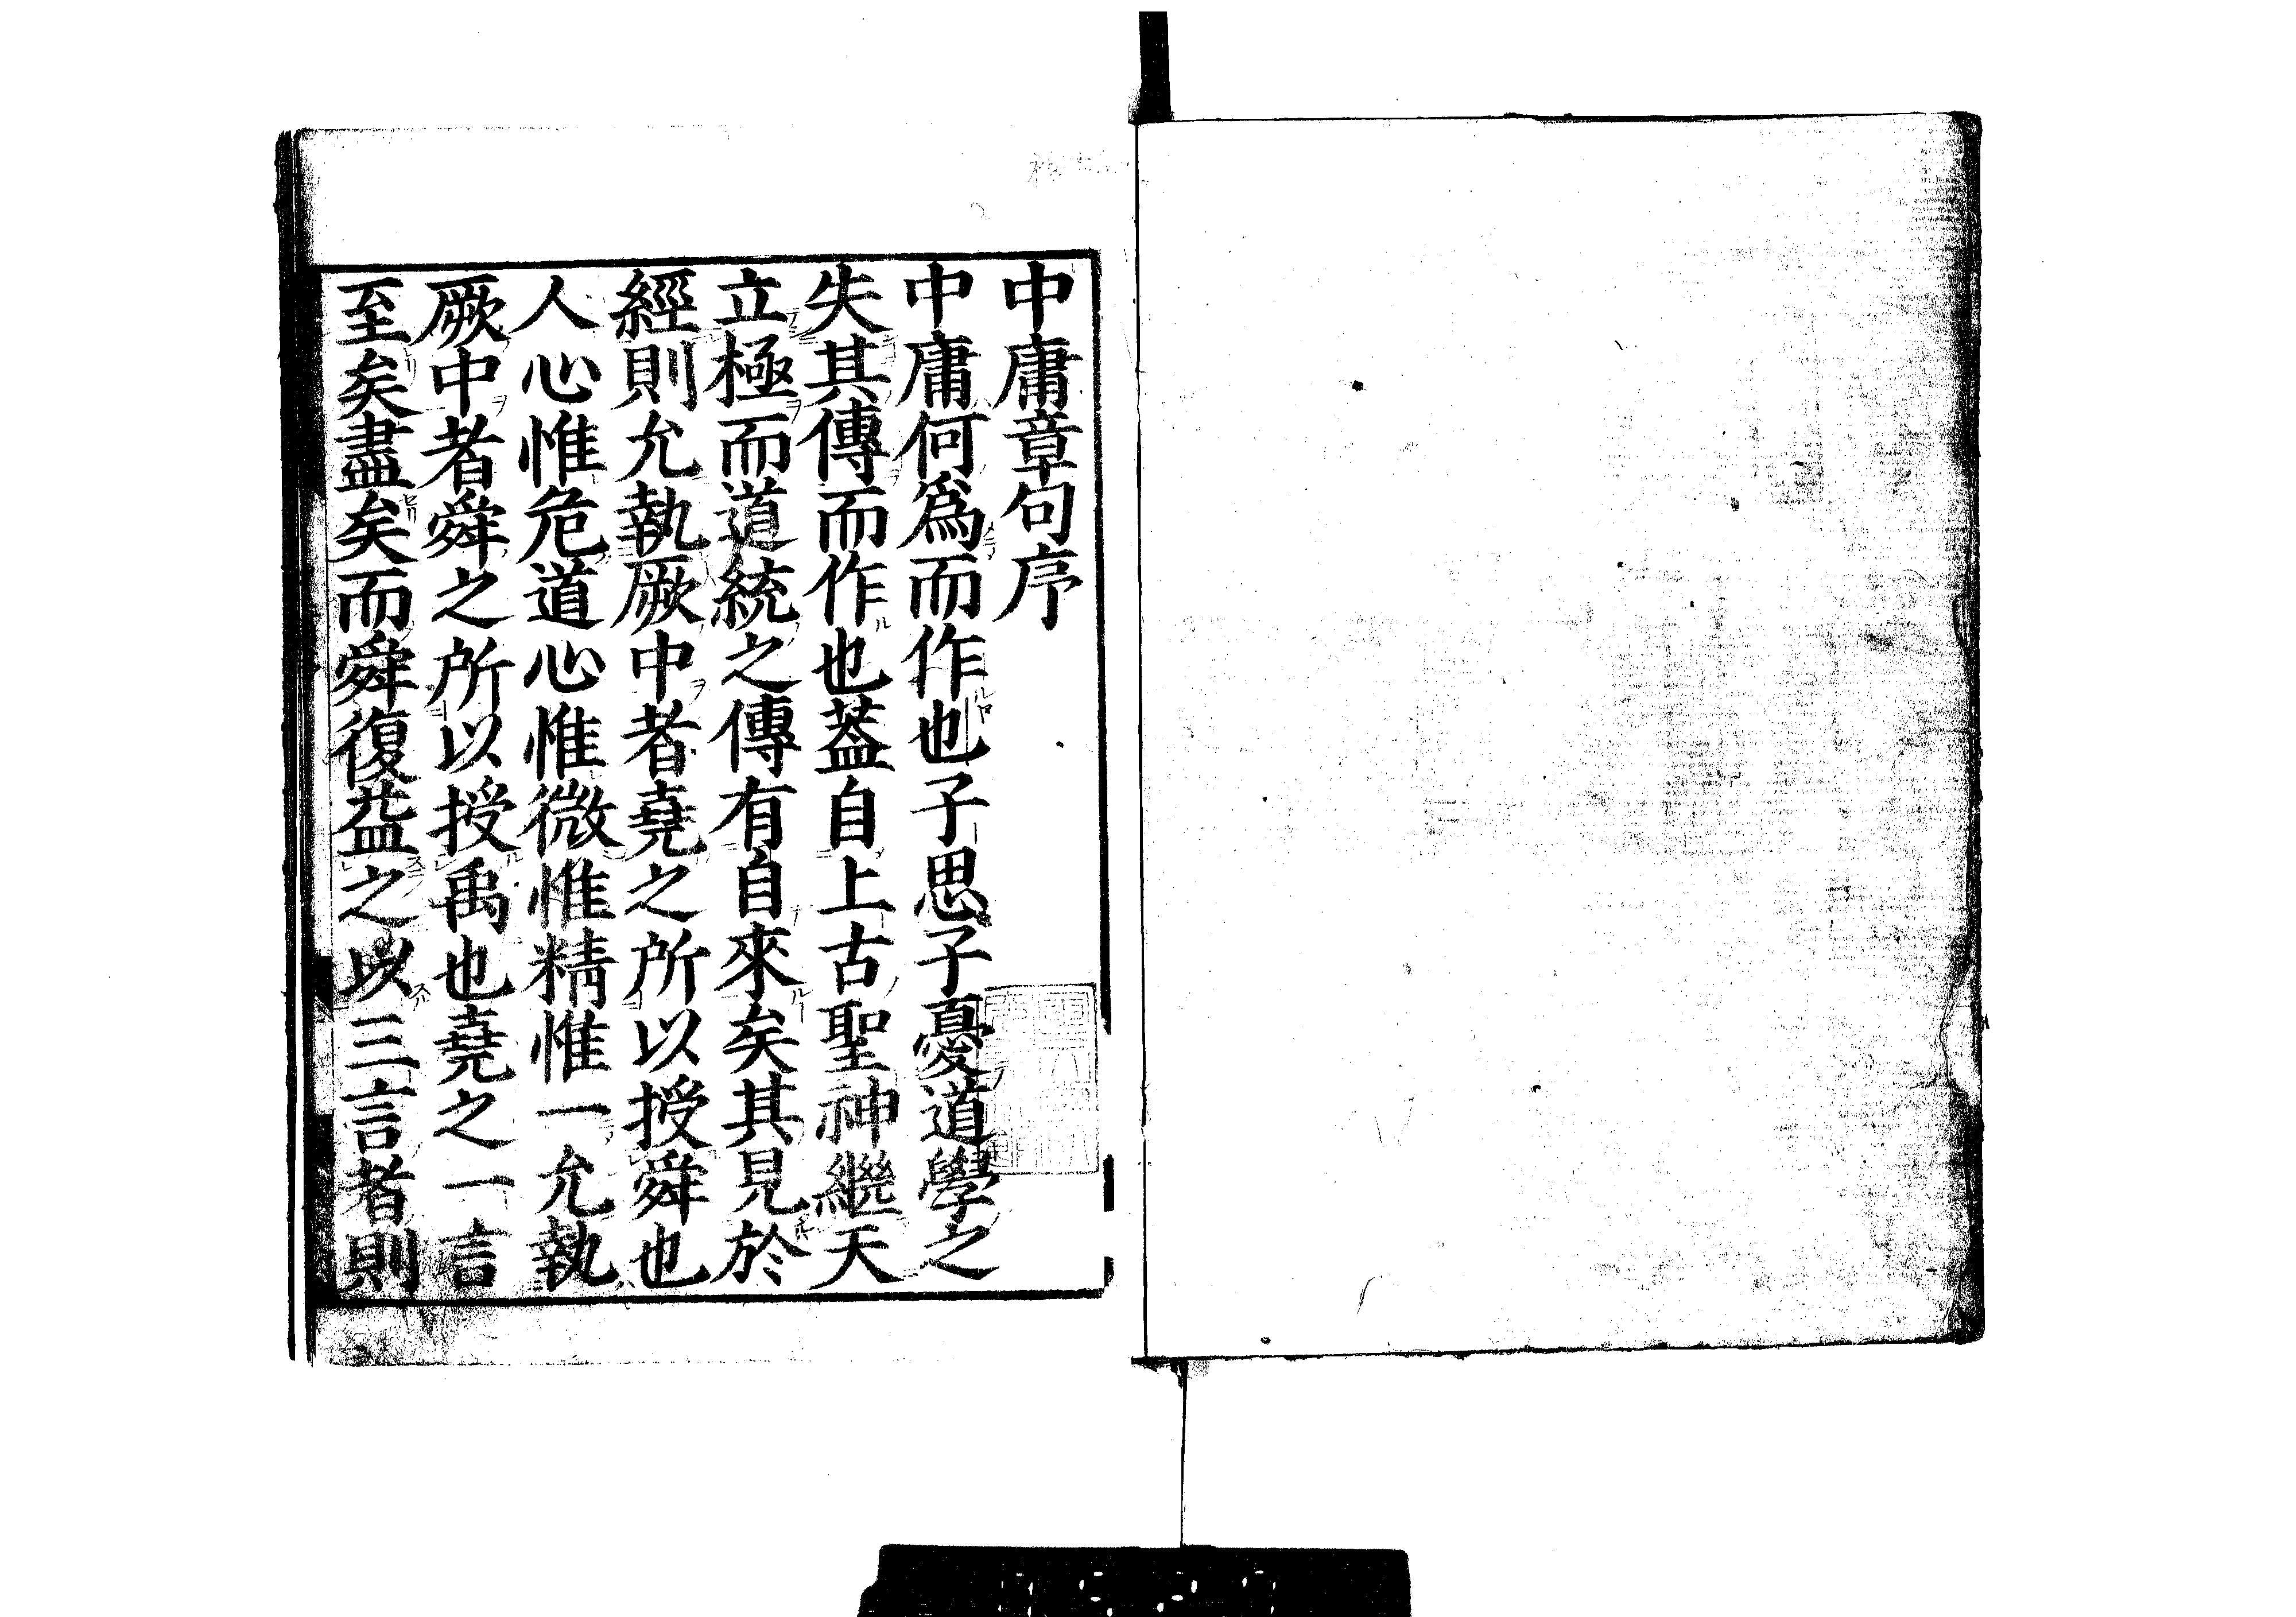 中庸章句序
中庸何爲而作也子思子憂道學之
失其傳而作也蓋自上古聖神繼天
立極而道統之傳有自來矣其見於
經則允執厥中者堯之所以授舜也
人心惟危道心惟微惟精惟一允執
厥中者舜之所以授禹也堯之一言
至矣盡矣而舜復益之以三言者則